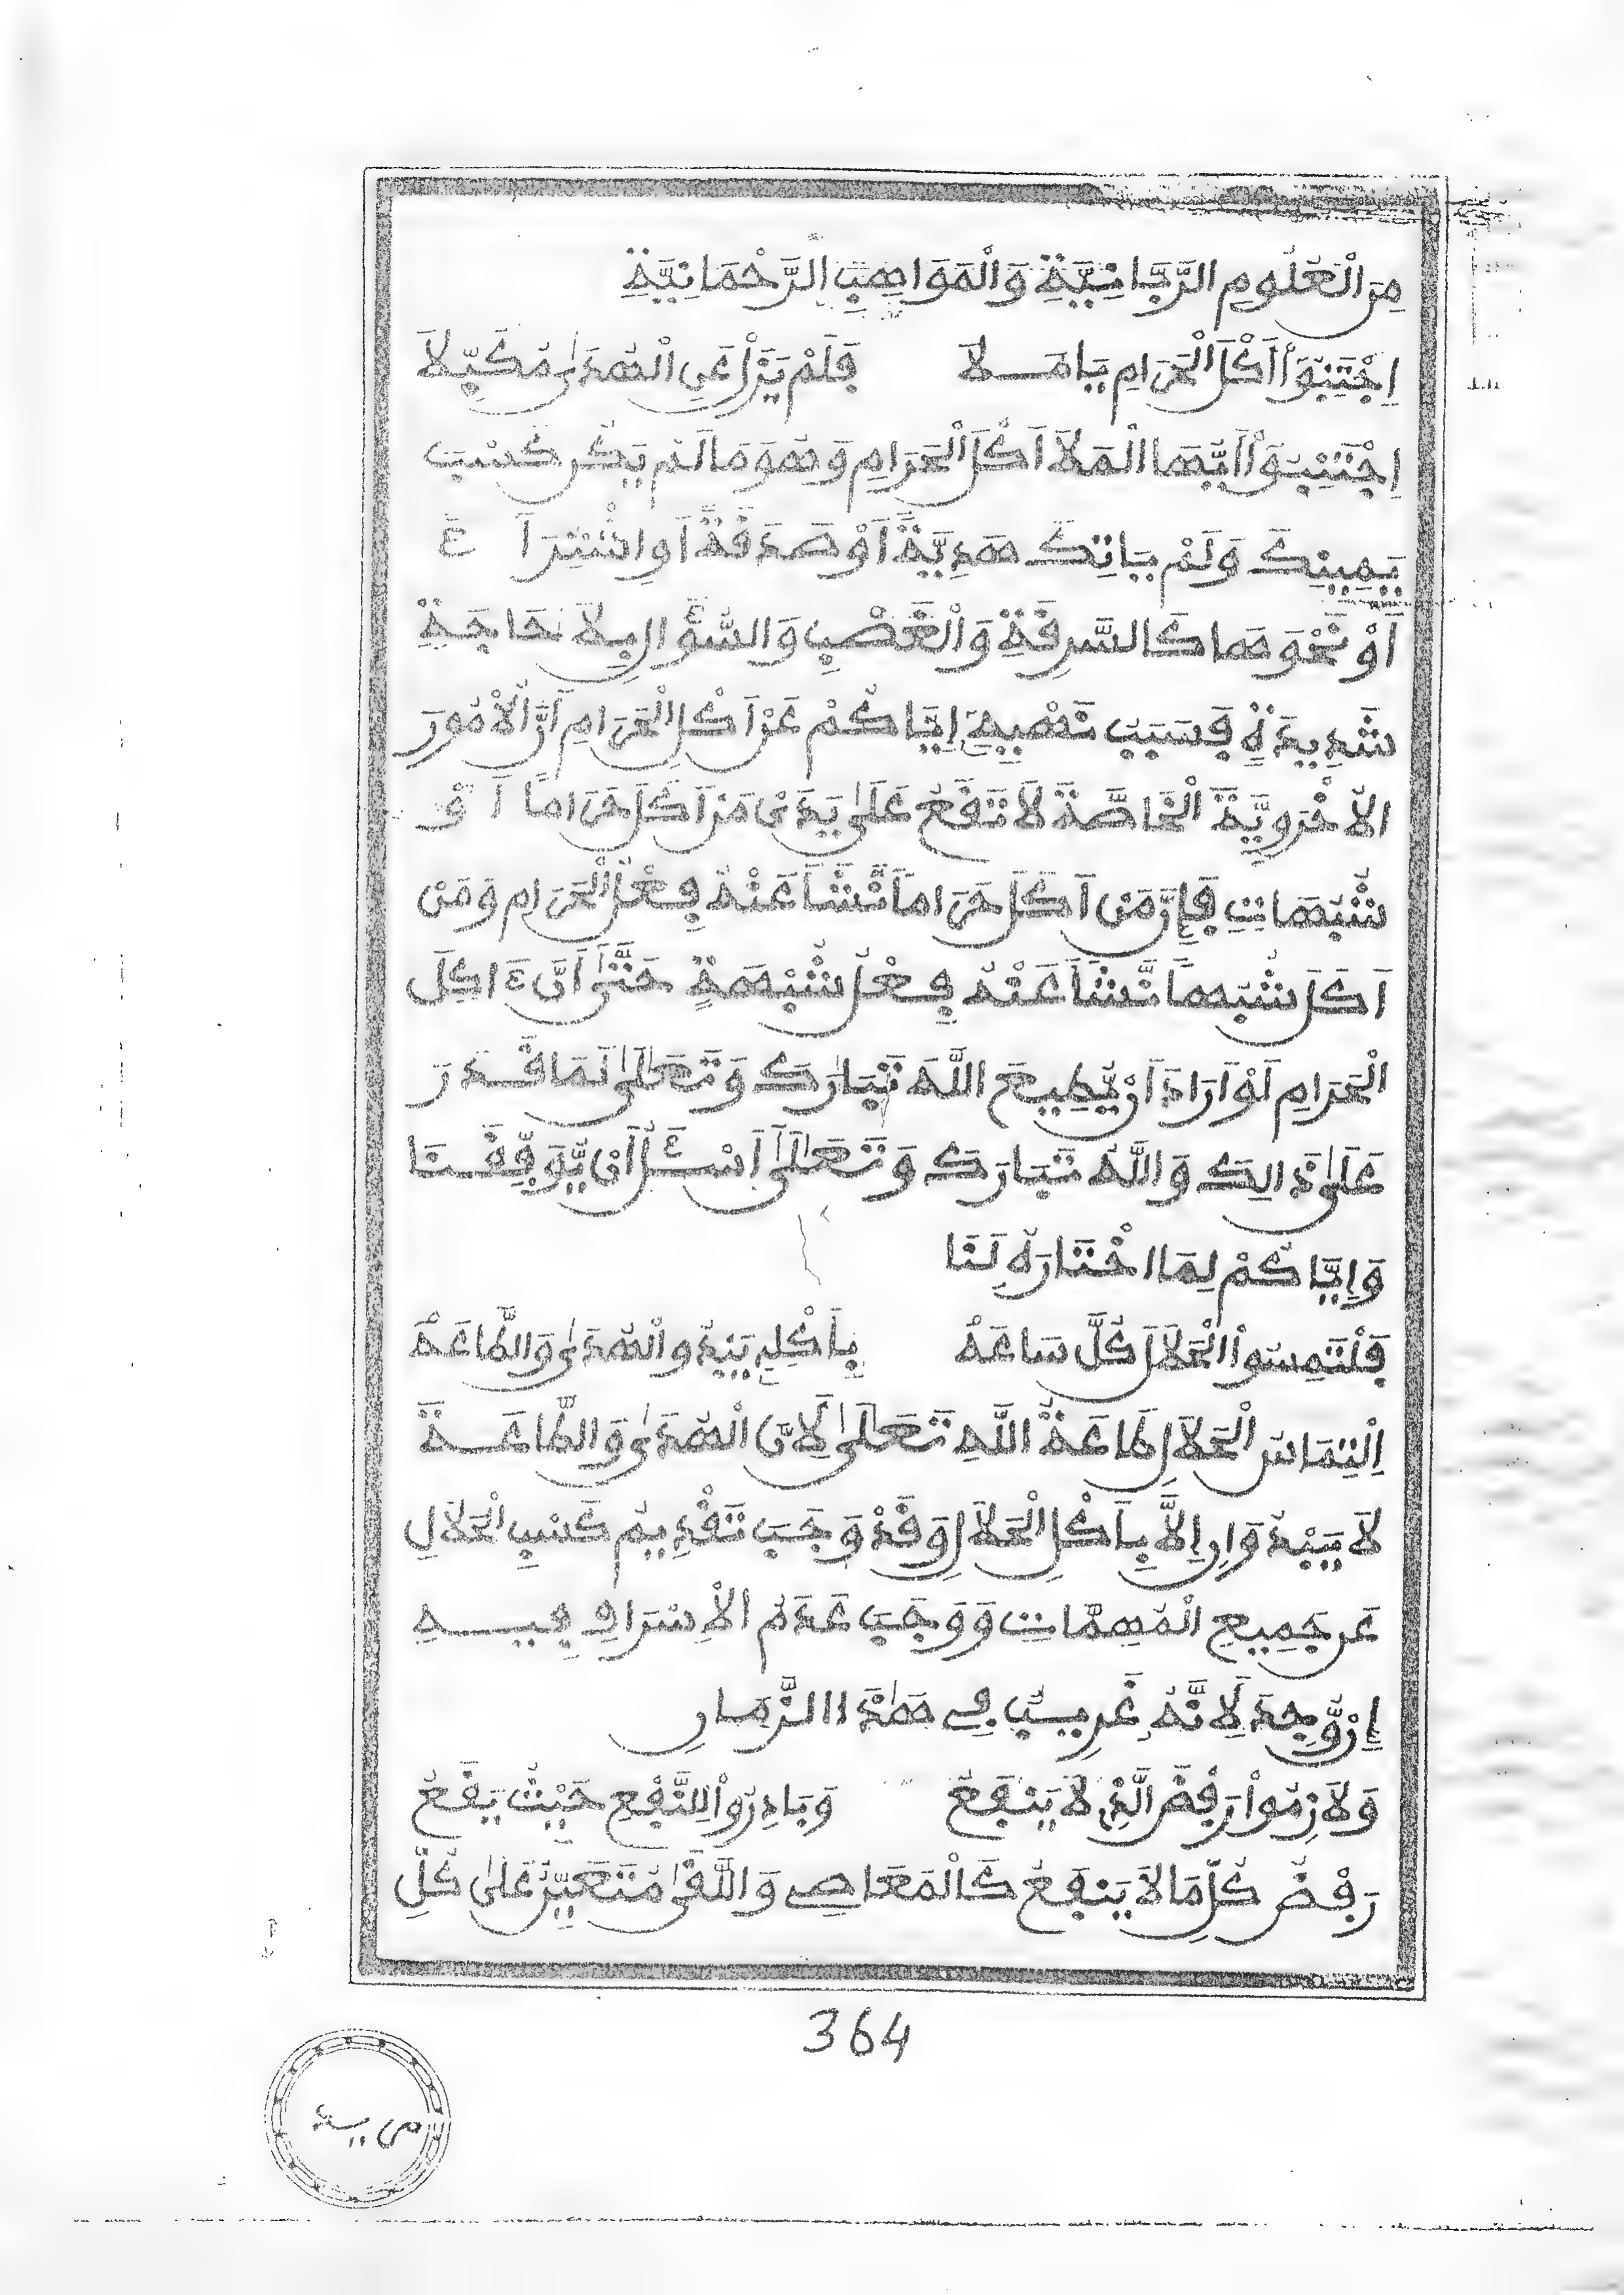 مِنَ الْعُلُومِ الرَّبَّانِيَّةِ وَالْمَوَاهِبِ الرَّحْمَانِيَّةِ
اِجْتَنِبُوٓاْ أَكْلَ الْحَرَامِ يَا مَـلَا فَلَمْ يَزَلْ عَنِ الْهُدَىٰ مُكَبِّلَا
اِجْتَنِبُوٓاْ أَيُّهَا الْمَلَا أَكْلَ الْحَرَامِ وَهُوَ مَا لَمْ يَكُن كَسْبَ
يَمِينِكَ وَلَمْ يَاتِكَ هَدِيَّةً أَوْ صَدَقَةً أَوِ اشْتِرَآءً
أَوْ نَحْوَهَا كَالسَّرِقَةِ وَالْغَصْبِ وَالسُّؤَالِ بِلَا حَاجَةٍ
شَدِيدَةٍ فَسَبَبُ نَهْيِهِ إِيَّاكُمْ عَنْ أَكْلِ الْحَرَامِ أَنَّ الْأُمُورَ
الْأُخْرَوِيَّةَ الْخَاصَّةَ لَا تَقَعُ عَلَىٰ يَدَيْ مَنْ أَكَلَ حَرَامًا أَوْ
شُبُهَاتٍ فَإِنَّ مَنْ أَكَلَ حَرَامًا نَّشَأَ عَنْهُ فِعْلُ الْحَرَامِ وَمَنْ
أَكَلَ شُبَهًا نَّشَأَ عَنْهُ فِعْلُ شُبْهَةٍ حَتَّىٰ أَنَّ ءَاكِلَ
الْحَرَامِ لَوْ أَرَادَ أَنْ يُّطِيعَ اللَّهَ تَبَارَكَ وَتَعَالَىٰ لَمَا قَـدَرَ
عَلَىٰ ذَالِكَ وَاللَّهَ تَبَارَكَ وَتَعَالَىٰ أَسْـَٔلُ أَنْ يُّوَفِّقَـنَا
وَإِيَّاكُمْ لِمَا اخْتَارَهُ لَنَا
فَلْتَلْتَمِسُواْ الْحَلَالَ كُلَّ سَاعَهْ بِأَكْلِهِ يَبْدُو الْهُدَىٰ وَالطَّاعَهْ
اِلْتِمَاسُ الْحَلَالِ طَاعَةُ اللَّهِ تَعَالَىٰ لِأَنَّ الْهُدَىٰ وَالطَّاعَـةَ
لَا يَبْدُوَانِ إِلَّا بِأَكْلِ الْحَلَالِ وَقَدْ وَجَبَ تَقْدِيمُ كَسْبِ الْحَلَالِ
عَن جَمِيعِ الْمُهِمَّاتِ وَوَجَبَ عَدَمُ الْإِسْرَافِ فِيـهِ
إِنْ وُّجِدَ لِأَنَّهُ غَرِيبٌ فِي هَٰذَا الزَّمَـانِ
وَلَازِمُواْ رَفْضَ الَّذِي لَا يَنْفَعُ وَبَادِرُواْ لِلنَّفْعِ حَيْثُ يَقَعُ
رَفْضُ كُلِّ مَا لَا يَنْفَعُ كَالْمَعَاصِي وَاللَّقَىٰ مُتَعَيِّنٌ عَلَىٰ كُلِّ
364